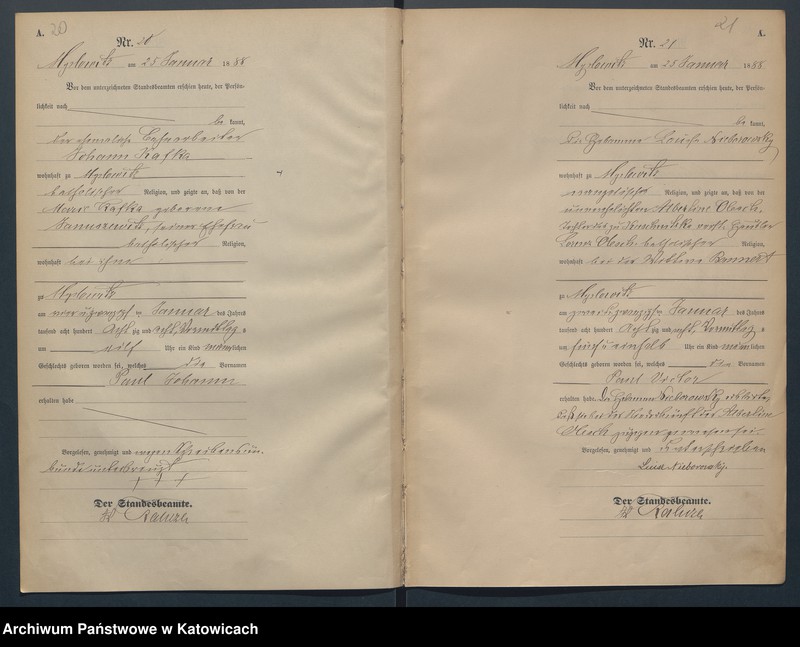 A. 20
Nr. 20
Myslowitz am 25 Januar 1888
Vor dem unterzeichneten Standesbeamten erschien heute, der Persön-
lichkeit nach
be kannt,
der ehemalige
Johann Kafka
wohnhaft zu Myslowitz
katholischer Religion, und zeigte an, daß von der
Marie Kafka geborene
seiner Ehefrau
katholischer Religion,
wohnhaft bei ihm
zu Myslowitz
am Januar des Jahres
tausend acht hundert Acht zig und acht Vormittag s
um eilf Uhr ein Kind männlichen
Geschlechts geboren worden sei, welches die Vornamen
Paul Johann
erhalten habe
Vorgelesen, genehmigt und wegen Schreibensun-
kunde unterkreuzt
+ + +
Der Standesbeamte.
21 A.
Nr. 21
Myslowitz am 25 Januar 1888
Vor dem unterzeichneten Standesbeamten erschien heute, der Persön-
lichkeit nach
be kannt,
die Hebamme Nieborowsky
wohnhaft zu Myslowitz
evangelischer Religion, und zeigte an, daß von der
unverehelichten Albertine
katholischer Religion,
wohnhaft bei der Wittwe
zu Myslowitz
am zwei u zwanzigsten Januar des Jahres
tausend acht hundert Acht zig und acht Vormittag s
um fünf u einhalb Uhr ein Kind männlichen
Geschlechts geboren worden sei, welches die Vornamen
Paul Victor
erhalten habe. Die Hebamme Nieborowsky erklärte,
daß sie bei der Niederkunft der Albertine
zugegen gewesen sei.
Vorgelesen, genehmigt und unterschrieben
Nieborowsky.
Der Standesbeamte.
Archiwum Państwowe w Katowicach